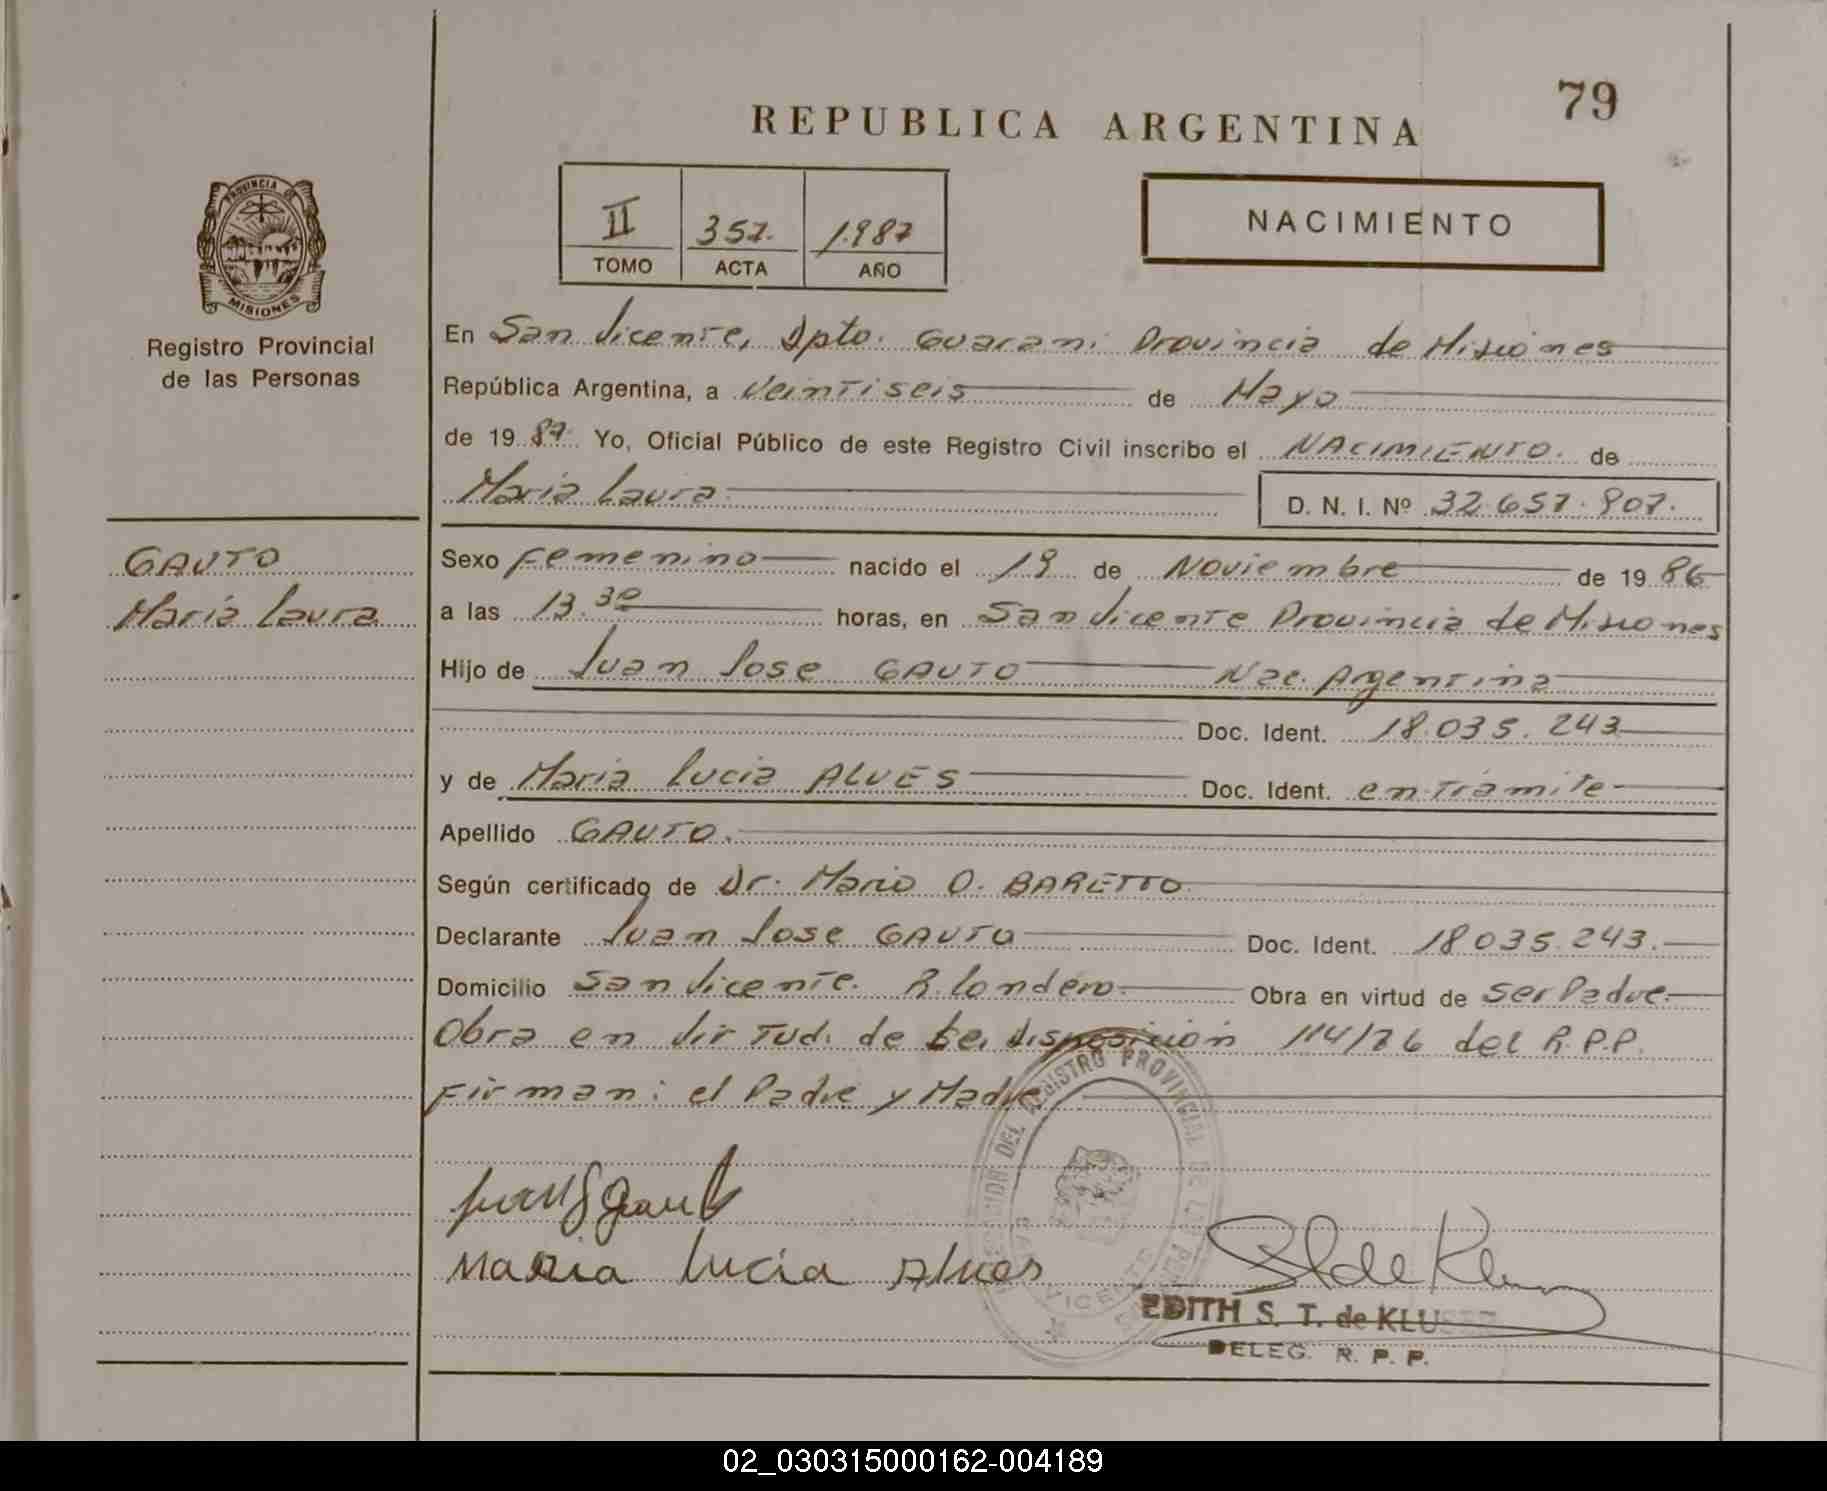 79
REPUBLICA ARGENTINA
NACIMIENTO
II 357. 1.987
TOMO ACTA AÑO
PROVINCIA DE
MISIONES
Registro Provincial
de las Personas
En San Vicente, Dpto. Guarani Provincia de Misiones
República Argentina, a Veintiseis de Mayo
de 19 87. Yo, Oficial Público de este Registro Civil inscribo el NACIMIENTO. de
Maria Laura. D. N. I. Nº 32.657.907.
GAUTO
Maria Laura
Sexo Femenino nacido el 19 de Noviembre de 19 86
a las 13.30 horas, en San Vicente Provincia de Misiones
Hijo de Juan Jose GAUTO Nac. Argentina
Doc. Ident. 18.035.243
y de Maria Lucia ALVES Doc. Ident. en Tramite
Apellido GAUTO.
Según certificado de Dr. Mario O. BARETTO
Declarante Juan Jose GAUTO Doc. Ident. 18035.243.
Domicilio San Vicente. R. Londero. Obra en virtud de Ser Padre.
Obra en Virtud. de disposición 114/76 del R.P.P.
Firman: el Padre y Madre
REGISTRO PROVINCIAL DE LAS
VICENTE
Maria Lucia Alves
EDITH S. T. de KLUSER
DELEG. R. P. P.
02_030315000162-004189